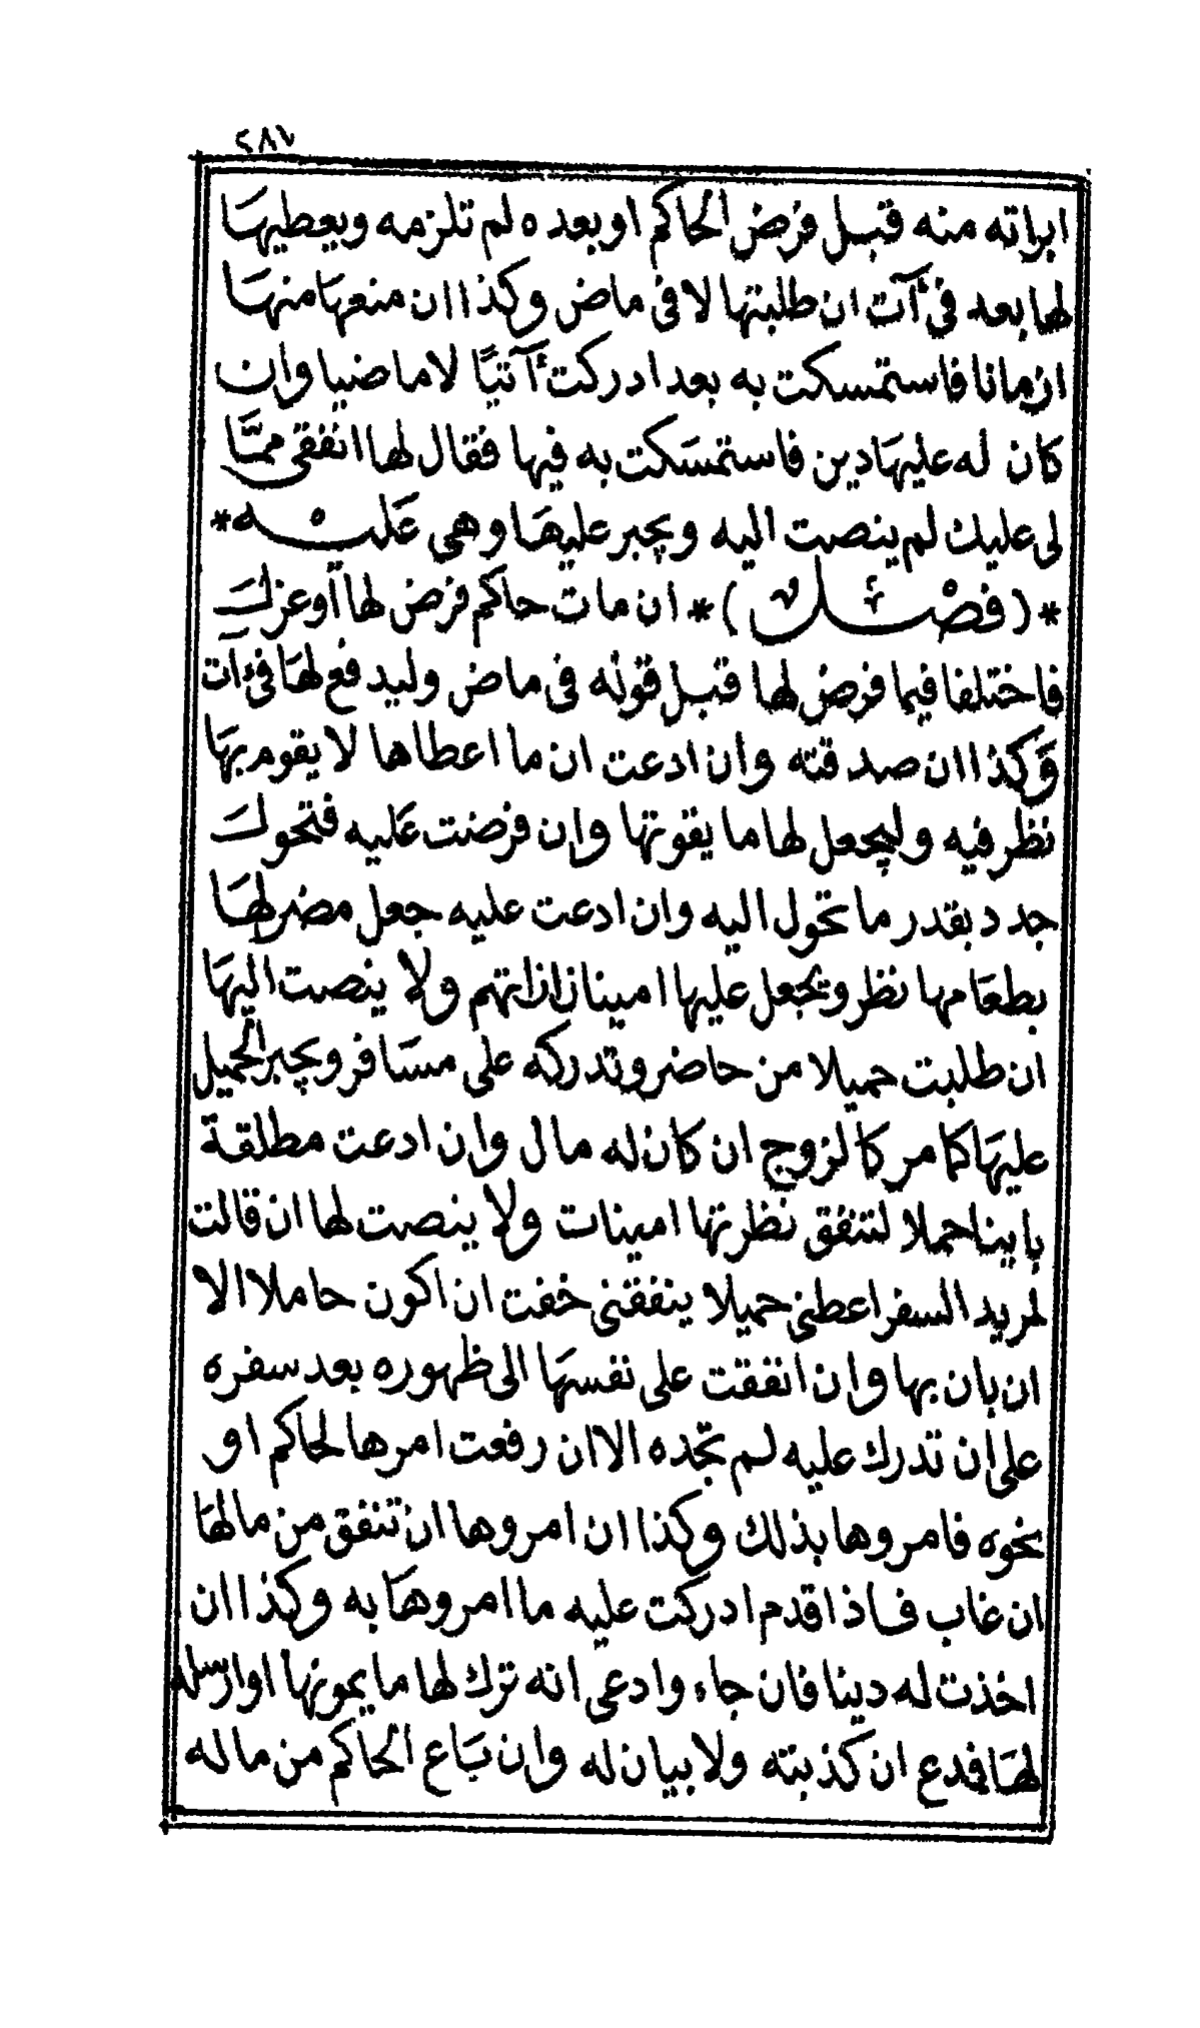 ٢٨٧
ابراته منه قبل فرض الحاكم او بعده لم تلزمه ويعطيها
لها بعد فى ءآت ان طلبتها لا فى ماض وكذا ان منعها منها
ازمانا فاستمسكت به بعد ادركت ءآتيًا لا ماضيا وان
كان له عليها دين فاستمسكت به فيها فقال لها انفقى ممَّا
لى عليك لم ينصت اليه ويجبر عليها وهى عليه *
* ( فصل ) * ان مات حاكم فرض لها او عزل
فاختلفا فيما فرض لها قبل قوله فى ماض وليدفع لها فى ءات
وكذا ان صدقته وان ادعت ان ما اعطاها لا يقوم بها
نظر فيه وليجعل لها ما يقوتها وان فرضت عليه فتحول
جدد بقدر ما تحول اليه وان ادعت عليه جعل مضر لها
بطعامها نظر ويجعل عليها امينان ان اتهم ولا ينصت اليها
ان طلبت حميلا من حاضر وتدركه على مسافر ويجبر الحميل
عليها كما مر كالزوج ان كان له مال وان ادعت مطلقة
باينا حملا لتنفق نظرتها امينات ولا ينصت لها ان قالت
لمريد السفر اعطنى حميلا ينفقنى خفت ان اكون حاملا الا
ان بان بها وان انفقت على نفسها الى ظهوره بعد سفره
على ان تدرك عليه لم تجده الا ان رفعت امرها لحاكم او
نحوه فامروها بذلك وكذا ان امروها ان تنفق من مالها
ان غاب فاذا قدم ادركت عليه ما امروها به وكذا ان
اخذت له دينا فان جاء وادعى انه ترك لها ما يمونها او ارسله
لها فمدع ان كذبته ولا بيان له وان باع الحاكم من ماله